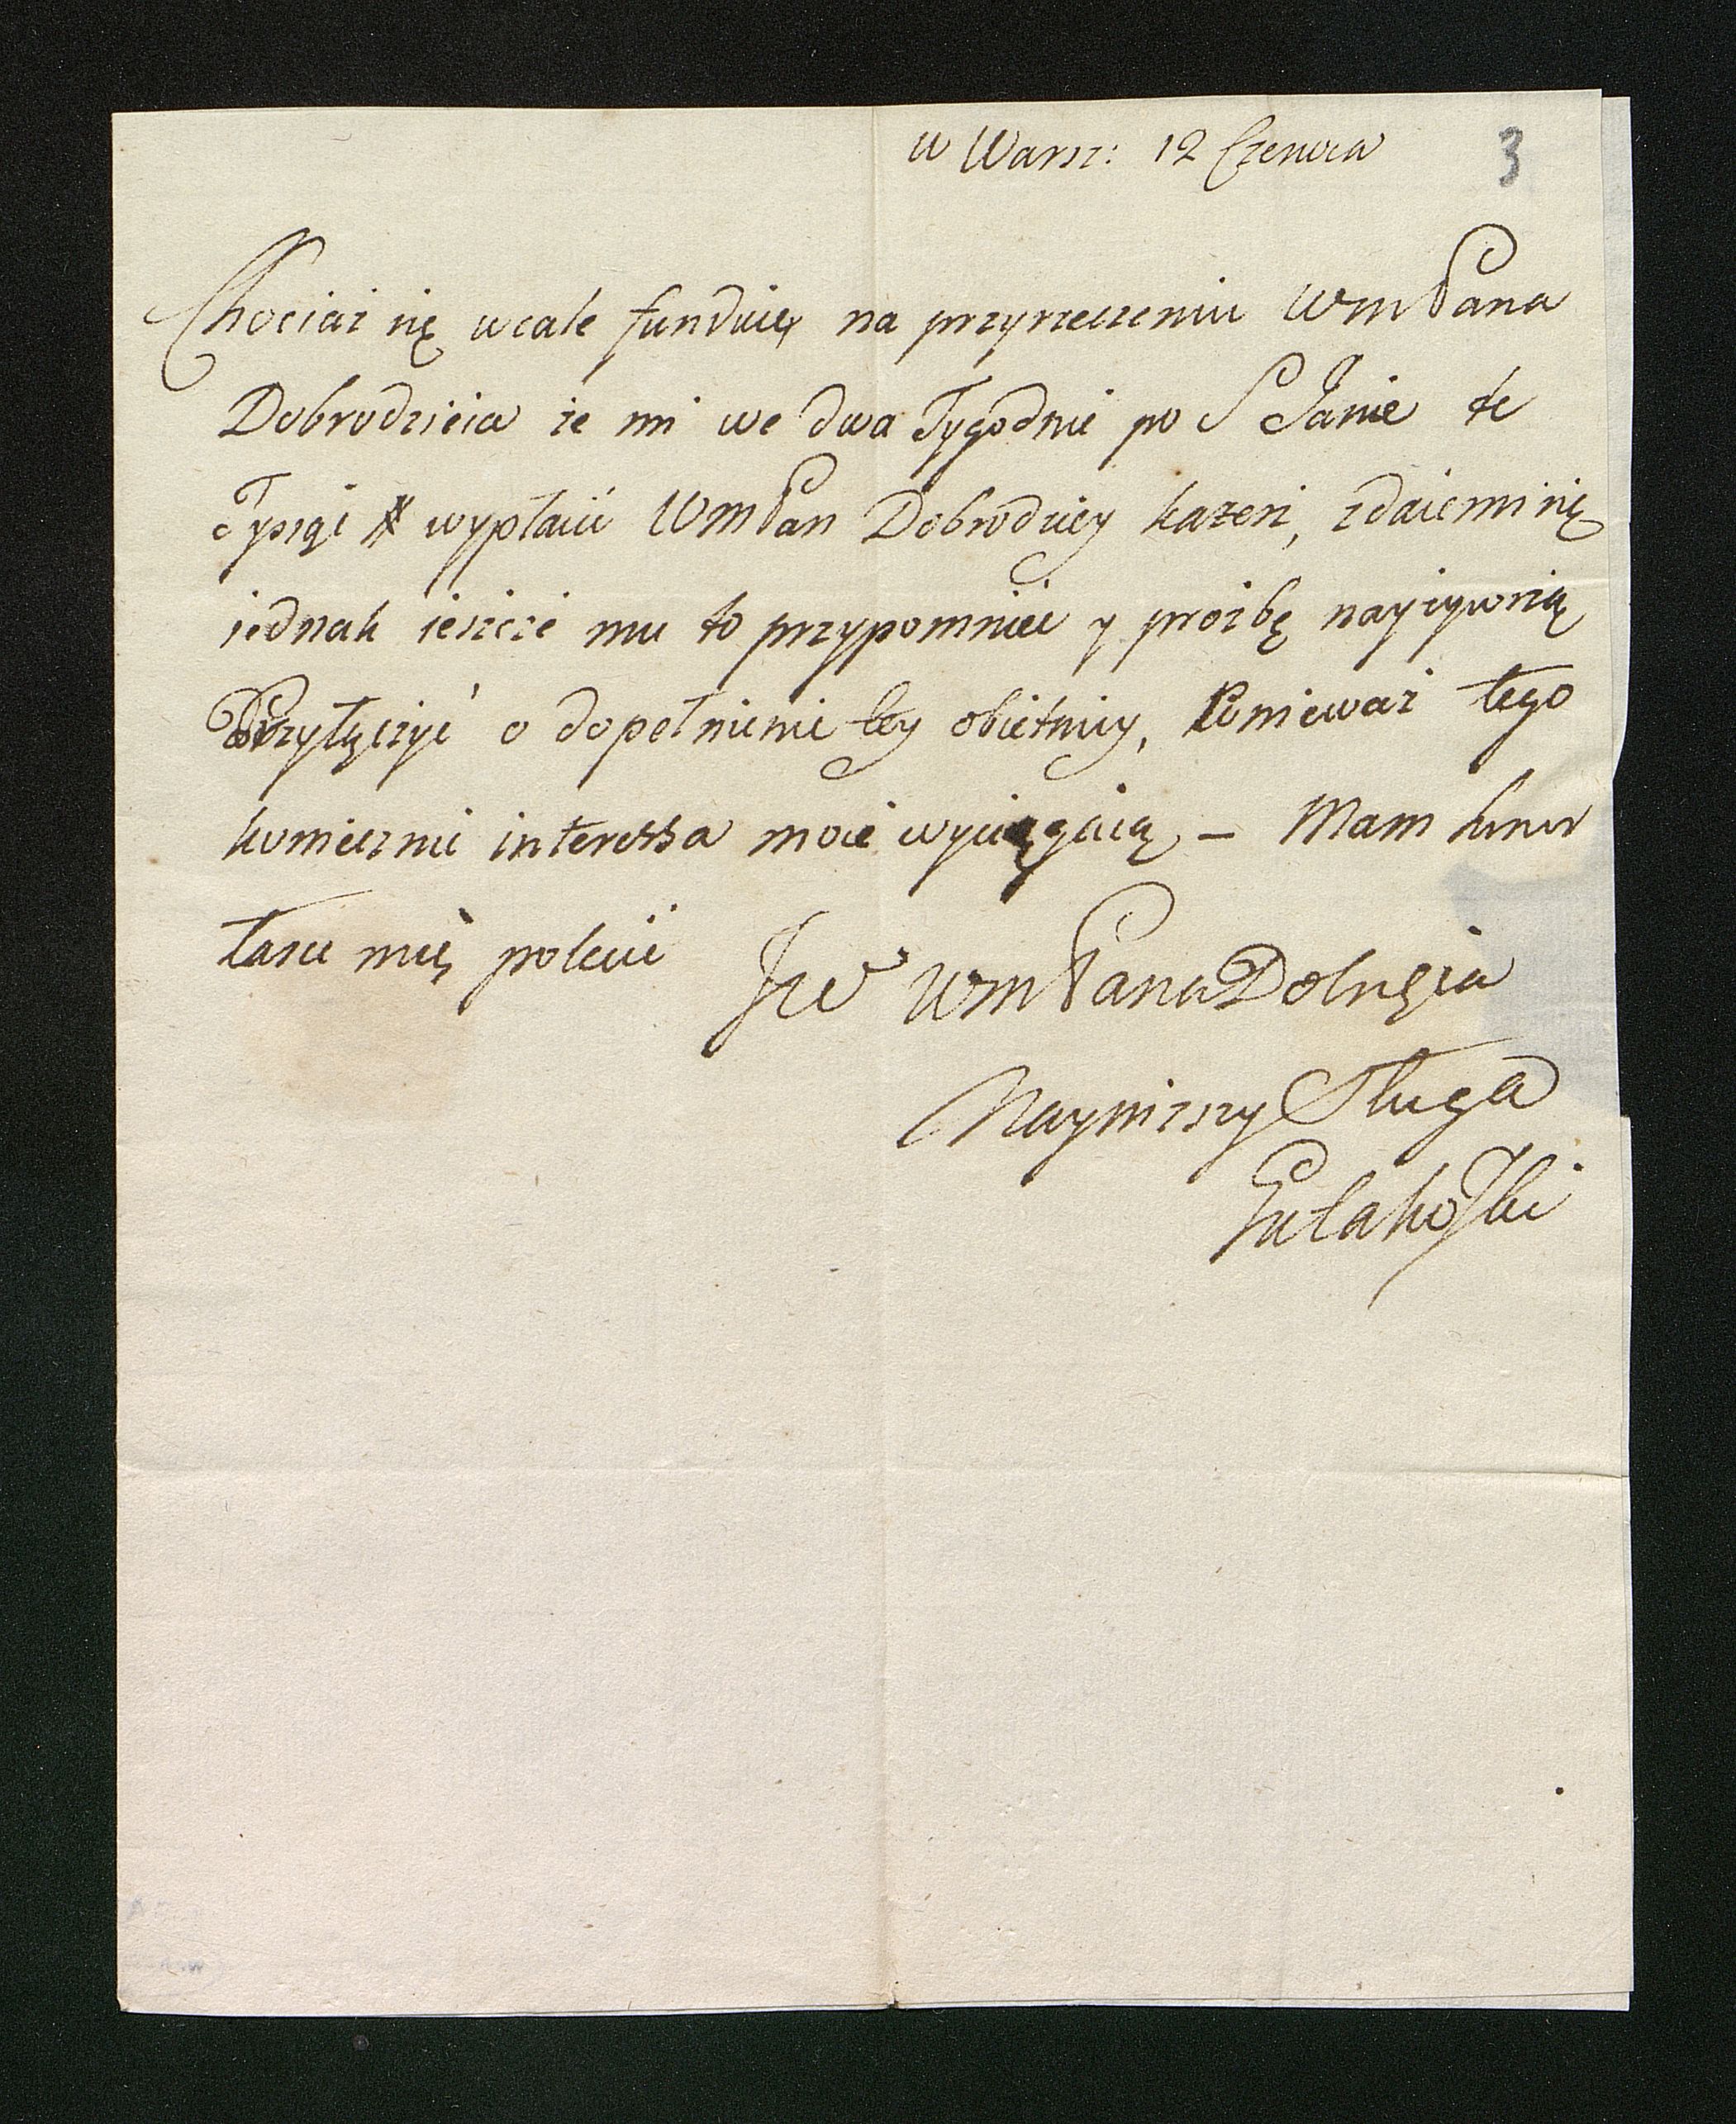 w Warsz: 12 Czerwca 3
Chociaż się wcale funduię na przyrzeczeniu WmPana
Dobrodzieia że mi we dwa Tygodnie po S Janie te
Tysiąc # wypłacić WmPan Dobrodziey każesz, zdaiemi się
iednak ieszcze mu to przypomnieć y prożbę nayżywszą
Przyłączyć o dopełnienie tey obietnicy, Ponieważ tego
koniecznie interessa moie wyciągaią – Mam honor
łasce mię polecić JW WmPana Dobrgieia
Nayniższy Sługa